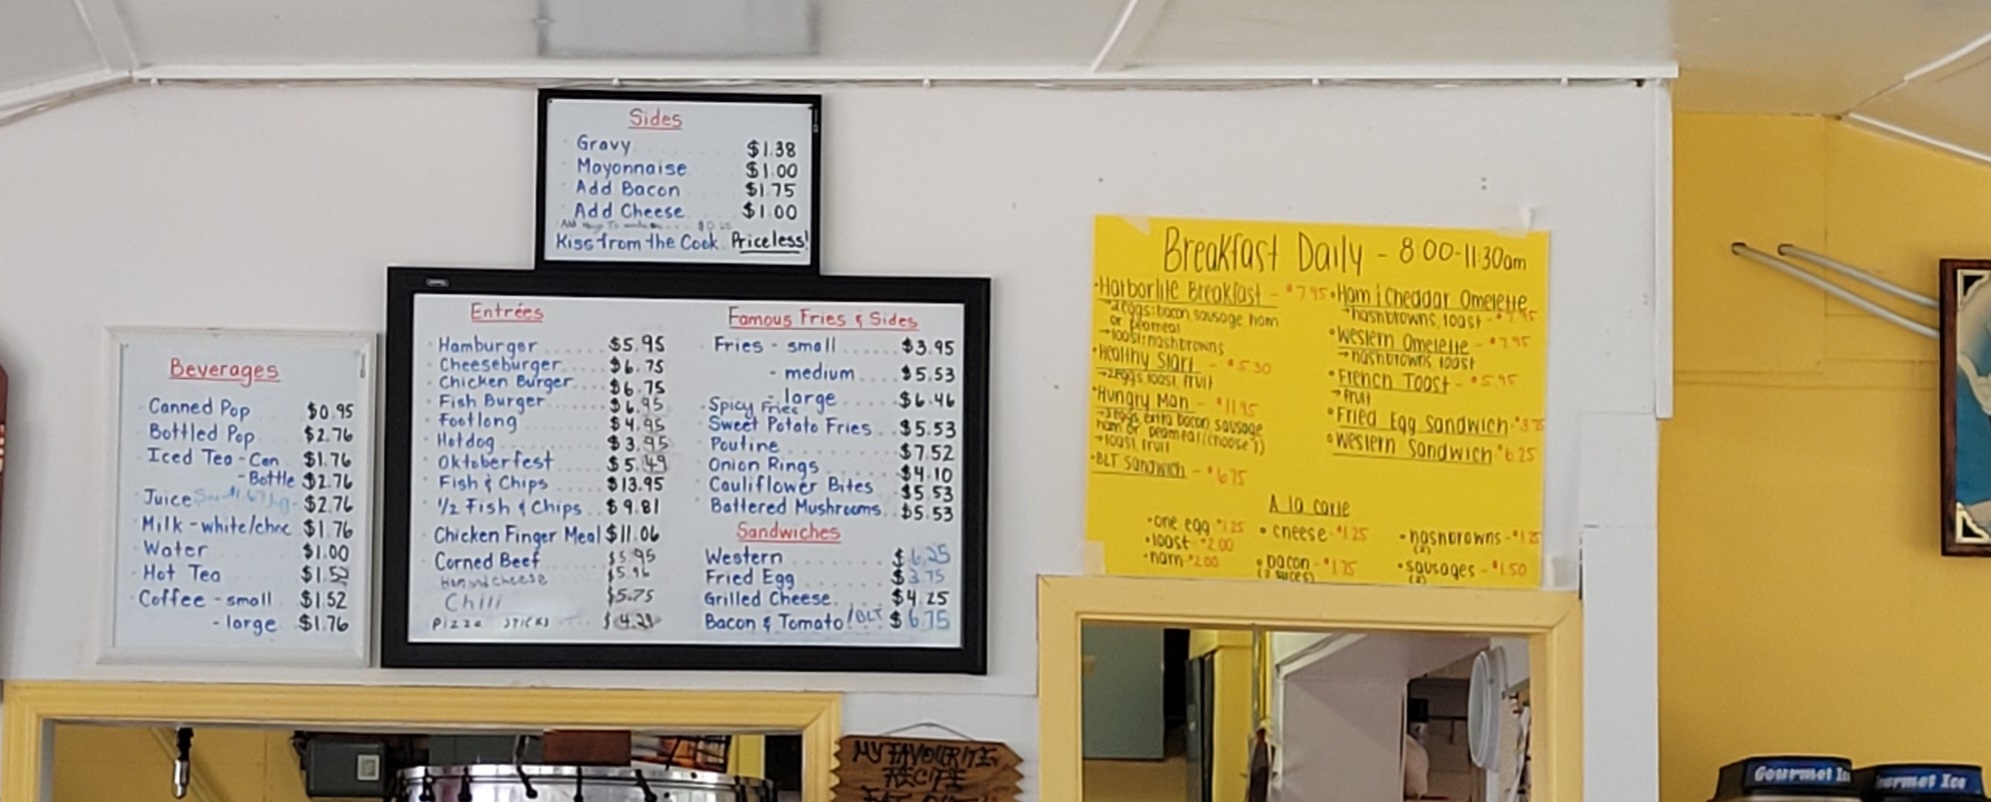 Sides
Gravy $1.38
Mayonnaise $1.00
Add Bacon $1.75
Add Cheese $1.00
Kiss from the Cook Priceless!
Beverages
Canned Pop $0.95
Bottled Pop $2.76
Iced Tea - Can $1.76
- Bottle $2.76
Juice $2.76
Milk - white/choc $1.76
Water $1.00
Hot Tea $1.52
Coffee - small $1.52
- large $1.76
Entrées
Hamburger $5.95
Cheeseburger $6.75
Chicken Burger $6.75
Fish Burger $6.95
Footlong $4.95
Hotdog $3.95
Oktoberfest $5.49
Fish & Chips $13.95
1/2 Fish & Chips $9.81
Chicken Finger Meal $11.06
Corned Beef $5.95
Ham and cheese $5.96
Chili $5.75
Pizza sticks
Famous Fries & Sides
Fries - small $3.95
- medium $5.53
- large $6.46
Spicy Fries
Sweet Potato Fries $5.53
Poutine $7.52
Onion Rings $4.10
Cauliflower Bites $5.53
Battered Mushrooms $5.53
Sandwiches
Western $6.25
Fried Egg $3.75
Grilled Cheese $4.25
Bacon & Tomato/BLT $6.75
Breakfast Daily - 8:00-11:30am
•Harborlite Breakfast - $7.95
→2 eggs: bacon sausage ham
or peameal
→toast: hashbrowns
•Healthy Start - $5.30
→2 eggs, toast, fruit
•Hungry Man - $11.95
→3 eggs extra bacon sausage
ham or peameal (choose 2)
→toast, fruit
•BLT Sandwich - $6.75
•Ham & Cheddar Omelette
→hashbrowns, toast - $7.95
•Western Omelette - $7.95
→hashbrowns, toast
•French Toast - $5.95
→fruit
•Fried Egg Sandwich - $3.75
•Western Sandwich - $6.25
A la carte
•one egg $1.25
•toast - $2.00
•ham - $2.00
•cheese - $1.25
•bacon - $1.75
(2 slices)
•hashbrowns - $1.25
(2)
•sausages - $1.50
(2)
MY FAVOURITE
RECIPE
EAT OUT!!
Gourmet Ice
Gourmet Ice